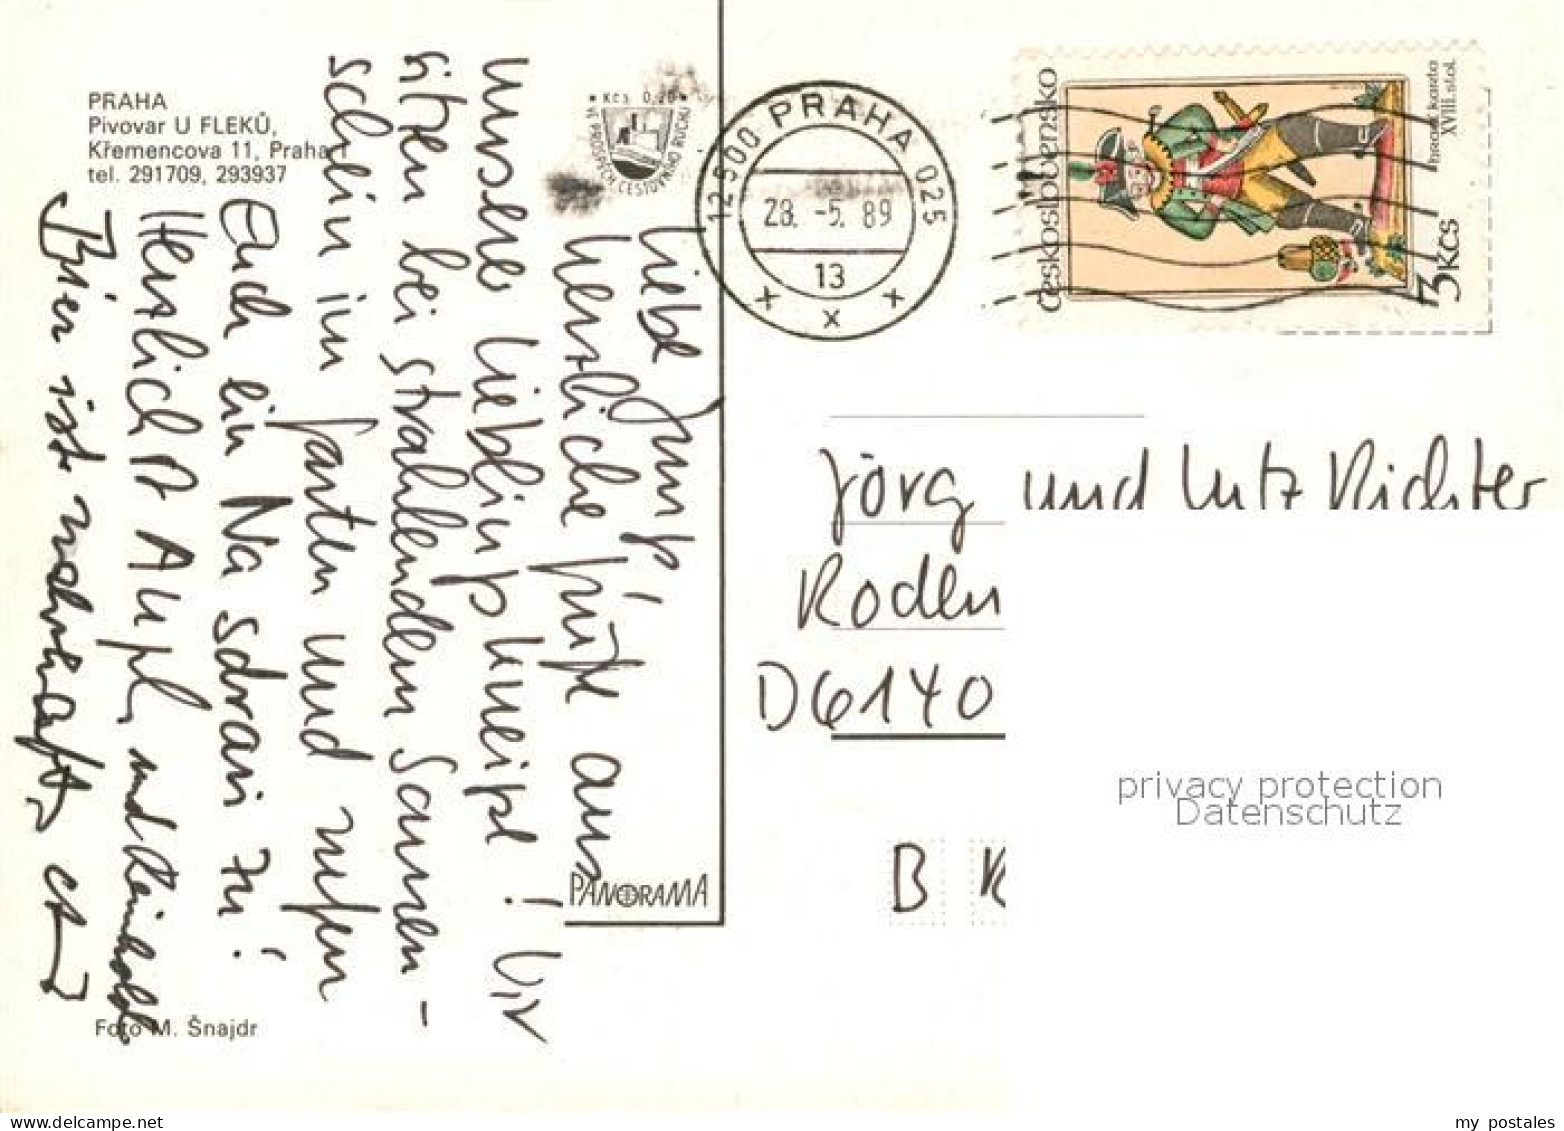 PRAHA
Pivovar U FLEKŮ,
Křemencova 11, Praha 1
tel. 291709, 293937
Liebe Jungs,
herzliche Grüße aus
unserer Lieblingskneipe! Wir
sitzen bei strahlendem Sonnen-
schein im Garten und rufen
Euch ein Na sdravi zu!
Herzlichst
und Reinhold
Bier ist nahrhaft,
Foto M. Šnajdr
PANORAMA
Kčs 0,20
CESTOVNÍHO RUCHU
12500 PRAHA 025
28. -5. 89
13
x x x
Československo
hrací karta
XVIII. stol.
3 Kčs
Jörg und Lutz Richter
Roden
D6140
B
privacy protection
Datenschutz
www.delcampe.net
my_postales